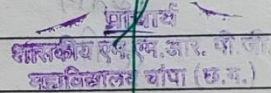 प्राचार्य
शासकीय एम.एम.आर. पी.जी.
महाविद्यालय चांपा (छ.ग.)